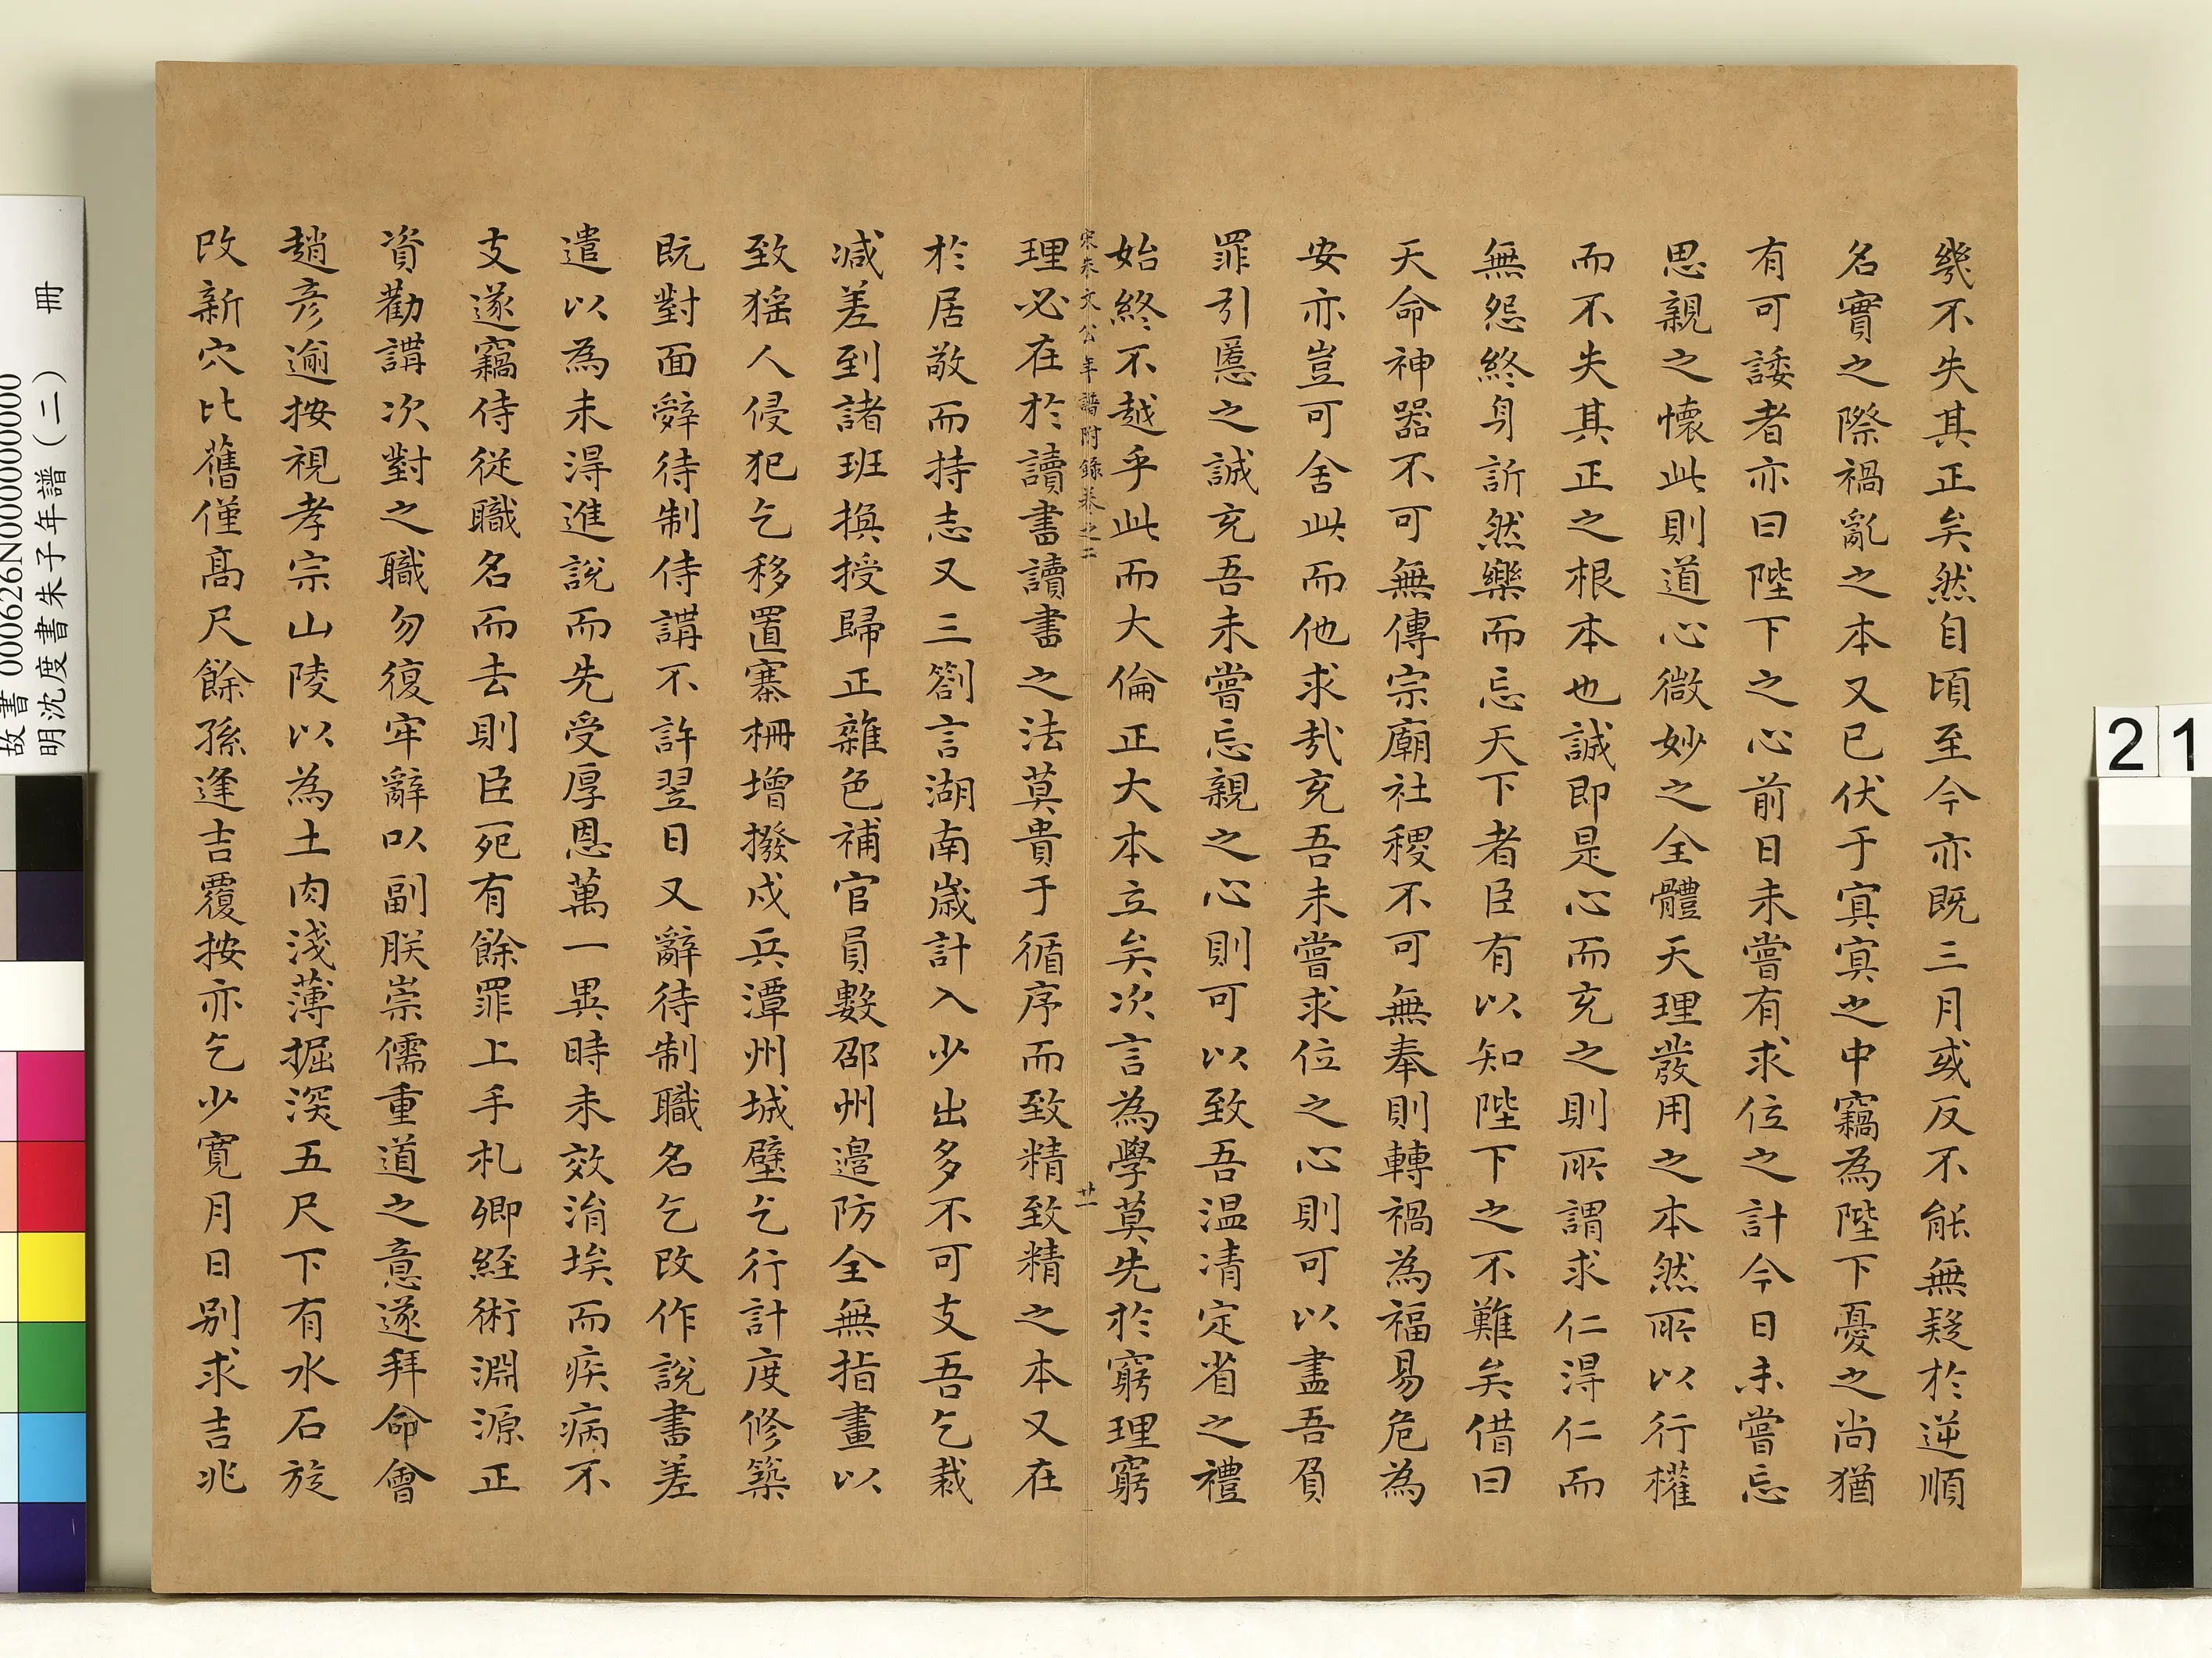 幾不失其正矣然自頃至今亦既三月或反不能無疑於逆順
名實之際禍亂之本又已伏于冥冥之中竊為陛下憂之尚猶
有可諉者亦曰陛下之心前日未嘗有求位之計今日未嘗忘
思親之懷此則道心微妙之全體天理發用之本然所以行權
而不失其正之根本也誠即是心而充之則所謂求仁得仁而
無怨終身訢然樂而忘天下者臣有以知陛下之不難矣借曰
天命神器不可無傳宗廟社稷不可無奉則轉禍為福易危為
安亦豈可舍此而他求哉充吾未嘗求位之心則可以盡吾負
罪引慝之誠充吾未嘗忘親之心則可以致吾温凊定省之禮
始終不越乎此而大倫正大本立矣次言為學莫先於窮理窮
宋朱文公年譜附錄卷之二 廿一
理必在於讀書讀書之法莫貴于循序而致精致精之本又在
於居敬而持志又三劄言湖南歲計入少出多不可支吾乞裁
減差到諸班換授歸正雜色補官員數邵州邊防全無指畫以
致猺人侵犯乞移置寨柵增撥戍兵潭州城壁乞行計度修築
既對面辤待制侍講不許翌日又辭待制職名乞改作說書差
遣以為未得進說而先受厚恩萬一異時未效涓埃而疾病不
支遂竊侍從職名而去則臣死有餘罪上手札卿經術淵源正
資勸講次對之職勿復牢辭以副朕崇儒重道之意遂拜命會
趙彦逾按視孝宗山陵以為土肉淺薄掘深五尺下有水石旋
改新穴比舊僅高尺餘孫逢吉覆按亦乞少寬月日别求吉兆
故書 000626N000000000
明沈度書朱子年譜(二) 冊
21